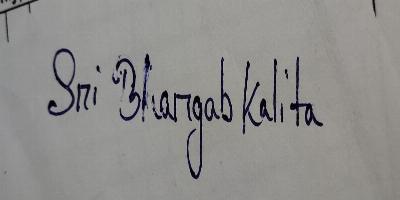 Sri Bhargab Kalita